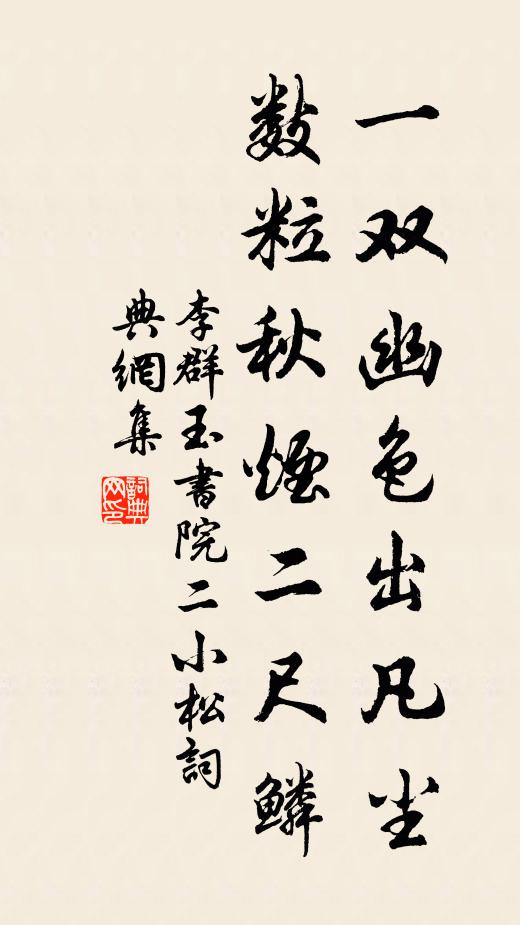 一双幽色出凡尘
数粒秋煙二尺鳞
李群玉書院二小松詞
典網集
詞典网印